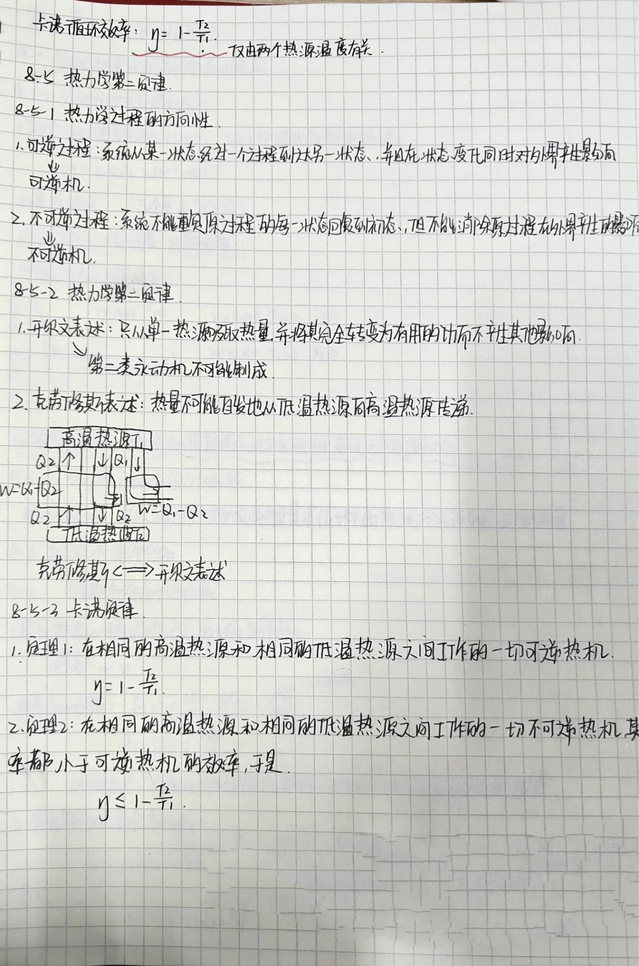 卡诺循环效率: η = 1 - T2/T1. 仅由两个热源温度有关.
8-5 热力学第二定律.
8-5-1 热力学过程的方向性.
1. 可逆过程: 系统从某一状态经过一个过程到达另一状态, 并且在状态变化同时对外界产生影响
↓
可逆机.
2. 不可逆过程: 系统不能重复原过程的每一状态回复到初态, 但不能消除原过程在外界产生的影响
↓
不可逆机.
8-5-2 热力学第二定律.
1. 开尔文表述: 只从单一热源吸取热量, 并将其完全转变为有用的功而不产生其他影响.
↘ 第二类永动机不可能制成.
2. 克劳修斯表述: 热量不可能自发地从低温热源向高温热源传递.
高温热源T1
Q2 ↑ ↓ Q1 ↓
W=Q1-Q2
Q2 ↑ ↓ Q2 W=Q1-Q2
低温热源T2
克劳修斯 <=> 开尔文表述
8-5-3 卡诺定律.
1. 定理1: 在相同的高温热源和相同的低温热源之间工作的一切可逆热机.
η = 1 - T2/T1.
2. 定理2: 在相同的高温热源和相同的低温热源之间工作的一切不可逆热机, 其
率都小于可逆热机的效率, 于是.
η ≤ 1 - T2/T1.